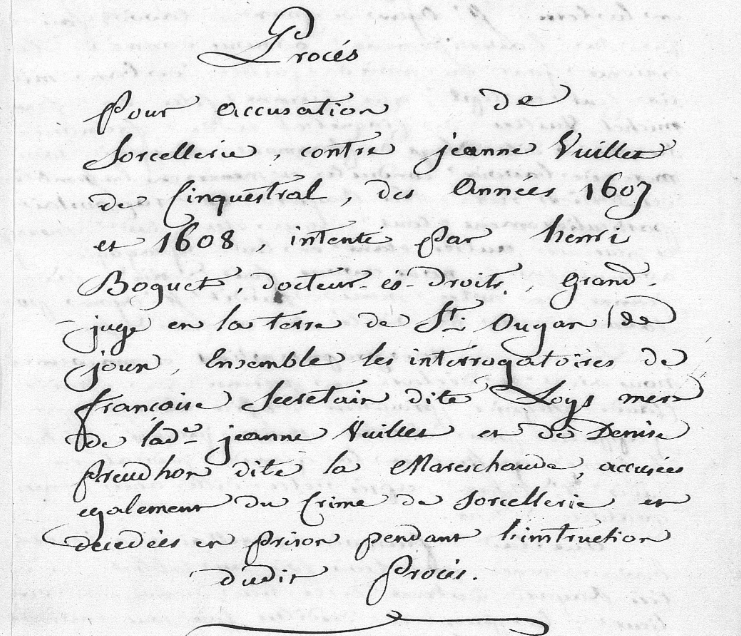 Procés
pour accusation de
Sorcellerie, contre jeanne Vuillet
de Cinquestral, des Années 1607
et 1608, intenté par henri
Boguet, docteur-es-droits, grand-
juge en la terre de St. Ougan (de
joux, Ensemble les interrogatoires de
francoise Secretain dite Loys mere
de lade. jeanne Vuillet et de Denise
preudhon dite la Mareschaude, accusées
egalement du Crime de Sorcellerie et
decedées en prison pendant l'instruction
dudit Procés.